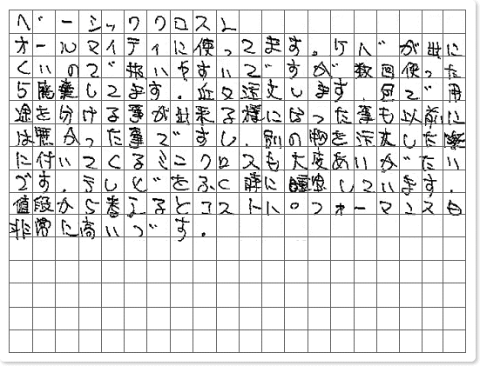 ベーシッククロスL
オールマイティに使ってます。ケバが出に
くいので扱いやすいですが数回使った
ら廃棄してます。近々注文します。目で用
途を分ける事が出来る様になった事も以前に
は無かった事ですし、別の物を注文した際
に付いてくるミニクロスも大変ありがたい
です。テレビをふく時に重宝しています。
値段から考えるとコストパフォーマンスも
非常に高いです。